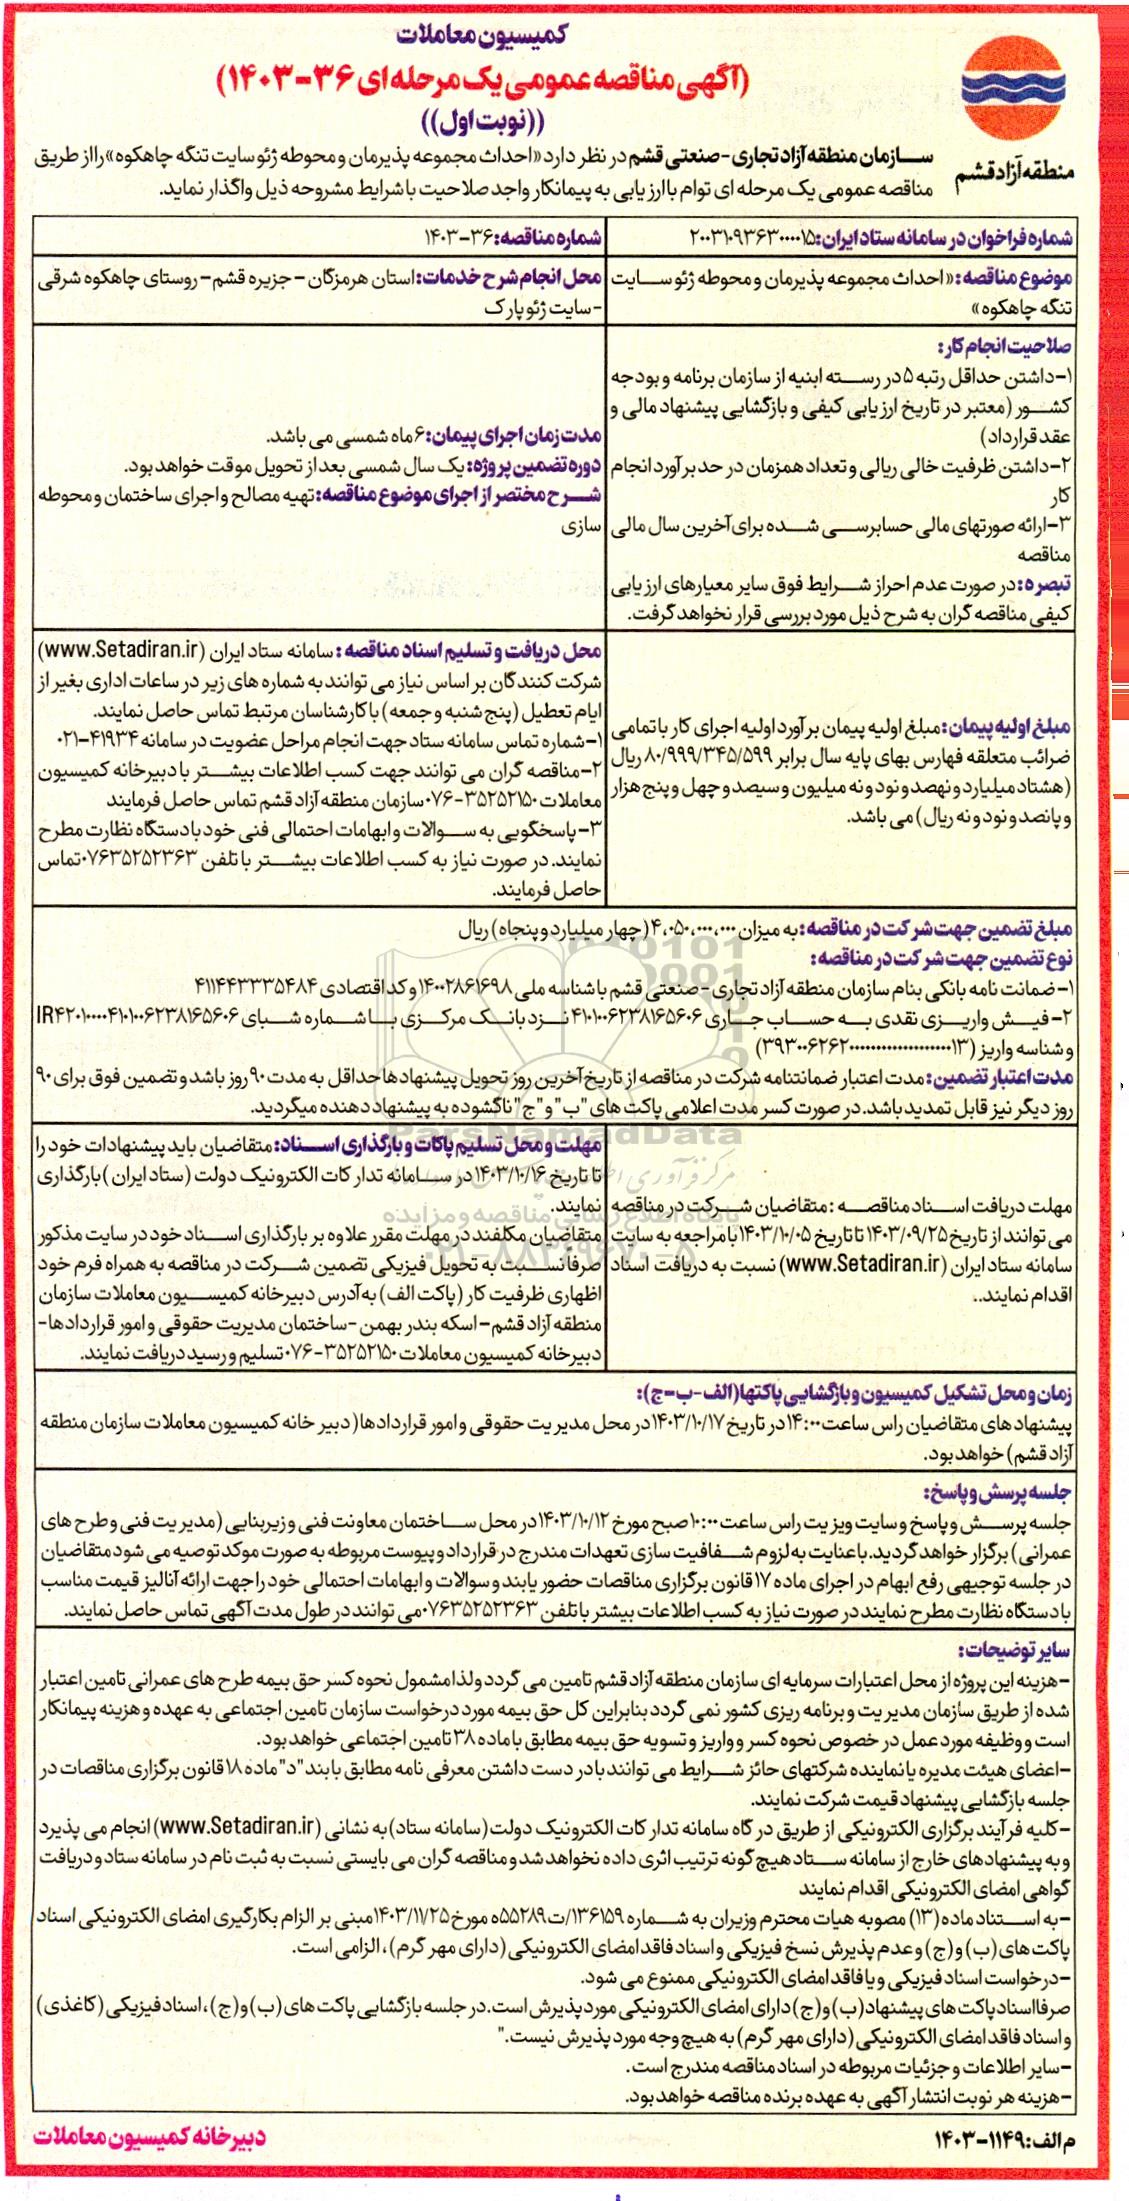 کمیسیون معاملات
(آگهی مناقصه عمومی یک مرحله ای ۳۶-۱۴۰۳)
((نوبت اول))
منطقه آزاد قشم
سازمان منطقه آزاد تجاری-صنعتی قشم در نظر دارد «احداث مجموعه پذیرمان و محوطه ژئوسایت تنگه چاهکوه» را از طریق
مناقصه عمومی یک مرحله ای توام با ارزیابی به پیمانکار واجد صلاحیت با شرایط مشروحه ذیل واگذار نماید.
شماره فراخوان در سامانه ستاد ایران: ۲۰۰۳۱۰۹۳۶۳۰۰۰۰۱۵
شماره مناقصه: ۳۶-۱۴۰۳
موضوع مناقصه: «احداث مجموعه پذیرمان و محوطه ژئوسایت
تنگه چاهکوه»
محل انجام شرح خدمات: استان هرمزگان – جزیره قشم – روستای چاهکوه شرقی
-سایت ژئوپارک
صلاحیت انجام کار:
۱-داشتن حداقل رتبه ۵ در رسته ابنیه از سازمان برنامه و بودجه
کشور (معتبر در تاریخ ارزیابی کیفی و بازگشایی پیشنهاد مالی و
عقد قرارداد)
۲-داشتن ظرفیت خالی ریالی و تعداد همزمان در حد برآورد انجام
کار
۳-ارائه صورتهای مالی حسابرسی شده برای آخرین سال مالی
مناقصه
تبصره: در صورت عدم احراز شرایط فوق سایر معیارهای ارزیابی
کیفی مناقصه گران به شرح ذیل مورد بررسی قرار نخواهد گرفت.
مدت زمان اجرای پیمان: ۶ ماه شمسی می باشد.
دوره تضمین پروژه: یک سال شمسی بعد از تحویل موقت خواهد بود.
شرح مختصر از اجرای موضوع مناقصه: تهیه مصالح و اجرای ساختمان و محوطه
سازی
مبلغ اولیه پیمان: مبلغ اولیه پیمان برآورد اولیه اجرای کار با تمامی
ضرائب متعلقه فهارس بهای پایه سال برابر ۸۰/۹۹۹/۳۴۵/۵۹۹ ریال
(هشتاد میلیارد و نهصد و نود و نه میلیون و سیصد و چهل و پنج هزار
و پانصد و نود و نه ریال) می باشد.
محل دریافت و تسلیم اسناد مناقصه : سامانه ستاد ایران (www.Setadiran.ir)
شرکت کنندگان بر اساس نیاز می توانند به شماره های زیر در ساعات اداری بغیر از
ایام تعطیل (پنج شنبه و جمعه) با کارشناسان مرتبط تماس حاصل نمایند.
۱-شماره تماس سامانه ستاد جهت انجام مراحل عضویت در سامانه ۴۱۹۳۴-۰۲۱
۲-مناقصه گران می توانند جهت کسب اطلاعات بیشتر با دبیرخانه کمیسیون
معاملات ۳۵۲۵۲۱۵۰-۰۷۶ سازمان منطقه آزاد قشم تماس حاصل فرمایند
۳-پاسخگویی به سوالات و ابهامات احتمالی فنی خود با دستگاه نظارت مطرح
نمایند. در صورت نیاز به کسب اطلاعات بیشتر با تلفن ۰۷۶۳۵۲۵۲۳۶۳ تماس
حاصل فرمایند.
مبلغ تضمین جهت شرکت در مناقصه: به میزان ۴،۰۵۰،۰۰۰،۰۰۰ (چهار میلیارد و پنجاه) ریال
نوع تضمین جهت شرکت در مناقصه:
۱- ضمانت نامه بانکی بنام سازمان منطقه آزاد تجاری - صنعتی قشم با شناسه ملی ۱۴۰۰۲۸۶۱۶۹۸ و کد اقتصادی ۴۱۱۴۴۳۳۳۵۴۸۴
۲- فیش واریزی نقدی به حساب جاری ۴۱۰۱۰۰۶۲۳۸۱۶۵۶۰۶ نزد بانک مرکزی با شماره شبای IR۴۲۰۱۰۰۰۰۴۱۰۱۰۰۶۲۳۸۱۶۵۶۰۶
و شناسه واریز
مدت اعتبار تضمین: مدت اعتبار ضمانتنامه شرکت در مناقصه از تاریخ آخرین روز تحویل پیشنهادها حداقل به مدت ۹۰ روز باشد و تضمین فوق برای ۹۰
روز دیگر نیز قابل تمدید باشد. در صورت کسر مدت اعلامی پاکت های "ب" و "ج" ناگشوده به پیشنهاد دهنده میگردد.
ParsNamadData
مهلت دریافت اسناد مناقصه : متقاضیان شرکت در مناقصه
می توانند از تاریخ ۱۴۰۳/۰۹/۲۵ تا تاریخ ۱۴۰۳/۱۰/۰۵ با مراجعه به سایت
سامانه ستاد ایران (www.Setadiran.ir) نسبت به دریافت اسناد
اقدام نمایند..
مهلت و محل تسلیم پاکات و بارگذاری اسناد: متقاضیان باید پیشنهادات خود را
تا تاریخ ۱۴۰۳/۱۰/۱۶ در سامانه تدارکات الکترونیک دولت (ستاد ایران) بارگذاری
نمایند.
متقاضیان مکلفند در مهلت مقرر علاوه بر بارگذاری اسناد خود در سایت مذکور
صرفا نسبت به تحویل فیزیکی تضمین شرکت در مناقصه به همراه فرم خود
اظهاری ظرفیت کار (پاکت الف) به آدرس دبیرخانه کمیسیون معاملات سازمان
منطقه آزاد قشم – اسکه بندر بهمن -ساختمان مدیریت حقوقی و امور قراردادها-
دبیرخانه کمیسیون معاملات ۳۵۲۵۲۱۵۰-۰۷۶ تسلیم و رسید دریافت نمایند.
پایگاه اطلاع رسانی مناقصه و مزایده
۰۲۱-۸۸۳۴۹۶۷۰-۵
زمان و محل تشکیل کمیسیون و بازگشایی پاکتها (الف-ب-ج):
پیشنهادهای متقاضیان راس ساعت ۱۴:۰۰ در تاریخ ۱۴۰۳/۱۰/۱۷ در محل مدیریت حقوقی و امور قراردادها (دبیر خانه کمیسیون معاملات سازمان منطقه
آزاد قشم) خواهد بود.
جلسه پرسش و پاسخ:
جلسه پرسش و پاسخ و سایت ویزیت راس ساعت ۱۰:۰۰ صبح مورخ ۱۴۰۳/۱۰/۱۲ در محل ساختمان معاونت فنی و زیربنایی (مدیریت فنی و طرح های
عمرانی) برگزار خواهد گردید. با عنایت به لزوم شفافیت سازی تعهدات مندرج در قرارداد و پیوست مربوطه به صورت موکد توصیه می شود متقاضیان
در جلسه توجیهی رفع ابهام در اجرای ماده ۱۷ قانون برگزاری مناقصات حضور یابند و سوالات و ابهامات احتمالی خود را جهت ارائه آنالیز قیمت مناسب
با دستگاه نظارت مطرح نمایند در صورت نیاز به کسب اطلاعات بیشتر با تلفن ۰۷۶۳۵۲۵۲۳۶۳ می توانند در طول مدت آگهی تماس حاصل نمایند.
سایر توضیحات:
-هزینه این پروژه از محل اعتبارات سرمایه ای سازمان منطقه آزاد قشم تامین می گردد ولذا مشمول نحوه کسر حق بیمه طرح های عمرانی تامین اعتبار
شده از طریق سازمان مدیریت و برنامه ریزی کشور نمی گردد بنابراین کل حق بیمه مورد درخواست سازمان تامین اجتماعی به عهده و هزینه پیمانکار
است و وظیفه مورد عمل در خصوص نحوه کسر و واریز و تسویه حق بیمه مطابق با ماده ۳۸ تامین اجتماعی خواهد بود.
-اعضای هیئت مدیره یا نماینده شرکتهای حائز شرایط می توانند با در دست داشتن معرفی نامه مطابق با بند "د" ماده ۱۸ قانون برگزاری مناقصات در
جلسه بازگشایی پیشنهاد قیمت شرکت نمایند.
-کلیه فرآیند برگزاری الکترونیکی از طریق درگاه سامانه تدارکات الکترونیک دولت (سامانه ستاد) به نشانی (www.Setadiran.ir) انجام می پذیرد
و به پیشنهادهای خارج از سامانه ستاد هیچ گونه ترتیب اثری داده نخواهد شد و مناقصه گران می بایستی نسبت به ثبت نام در سامانه ستاد و دریافت
گواهی امضای الکترونیکی اقدام نمایند
-به استناد ماده (۱۳) مصوبه هیات محترم وزیران به شماره ۱۳۶۱۵۹/ت۵۵۲۸۹ه مورخ ۱۴۰۳/۱۱/۲۵ مبنی بر الزام بکارگیری امضای الکترونیکی اسناد
پاکت های (ب) و (ج) و عدم پذیرش نسخ فیزیکی و اسناد فاقد امضای الکترونیکی (دارای مهر گرم)، الزامی است.
-درخواست اسناد فیزیکی و یا فاقد امضای الکترونیکی ممنوع می شود.
صرفا اسناد پاکت های پیشنهاد (ب) و (ج) دارای امضای الکترونیکی مورد پذیرش است. در جلسه بازگشایی پاکت های (ب) و (ج)، اسناد فیزیکی (کاغذی)
و اسناد فاقد امضای الکترونیکی (دارای مهر گرم) به هیچ وجه مورد پذیرش نیست."
-سایر اطلاعات و جزئیات مربوطه در اسناد مناقصه مندرج است.
-هزینه هر نوبت انتشار آگهی به عهده برنده مناقصه خواهد بود.
م الف: ۱۱۴۹-۱۴۰۳
دبیرخانه کمیسیون معاملات